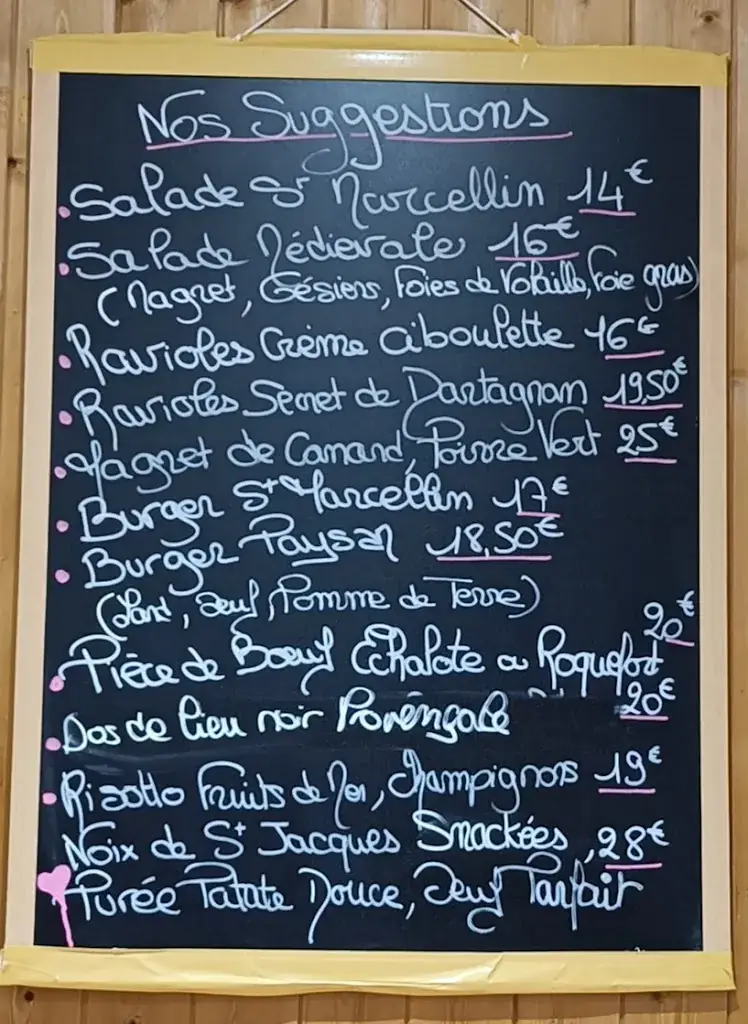 Nos Suggestions
Salade St Marcellin 14€
Salade Médievale 16€
(Magret, Gésiers, Foies de Volaille, Foie gras)
Ravioles Crème Ciboulette 16€
Ravioles Secret de Dartagnan 19,50€
Magret de Canard, Poivre Vert 25€
Burger St Marcellin 17€
Burger Paysan 18,50€
(Lard, Oeuf, Pomme de Terre)
20€
Pièce de Boeuf Echalote ou Roquefort
Dos de lieu noir Provençale 20€
Risotto Fruits de Mer, Champignons 19€
Noix de St Jacques Snackées, 28€
Purée Patate Douce, Oeuf Parfait